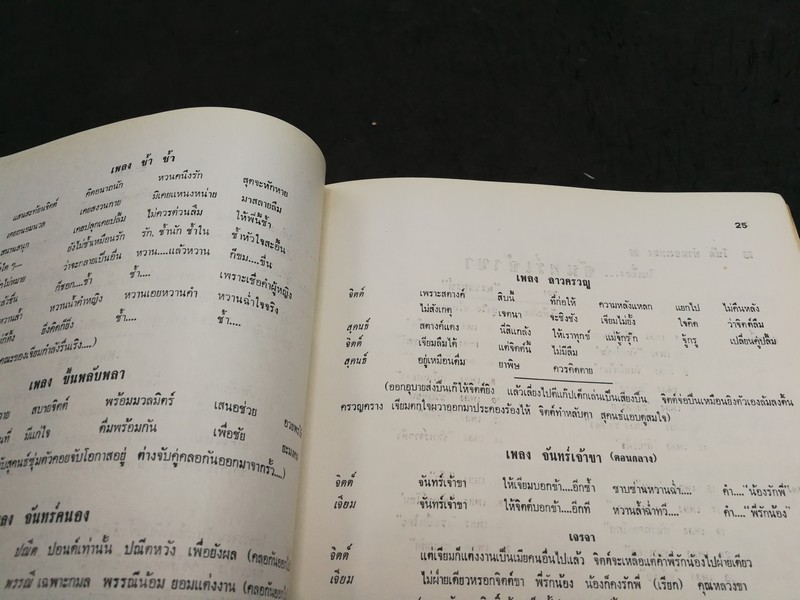 เพลง ช้า ช้ำ
คิดอนาถนัก หวานคนึงรัก สุดจะหักหาย
แสนสะท้อนจิตต์ เคยสงวนกาย มิเคยแหนงหน่าย มาสลายลืม
เคยถนอมนวล เคยปลุกเคยปลื้ม ไม่ควรด่วนลืม ให้พี่นี้ช้ำ
สนานสนุก ยังไม่ช้ำเหมือนรัก รัก, ช้ำนัก ช้ำใน ช้ำหัวใจสะอื้น
ว่าจะกลายเป็นอื่น หวาน....แล้วหวาน ก็ขม....ขื่น
ก็ชอก....ช้ำ ช้ำ.... เพราะเชื่อคำผู้หญิง
หวานน้ำคำหญิง หวานเอยหวานคำ หวานฉ่ำใจจริง
ยิ่งคิดก็ยิ่ง ช้ำ.... ช้ำ....
คณะของเจียมกำลังรื่นเริง....)
เพลง ขึ้นพลับพลา
สบายจิตต์ พร้อมมวลมิตร์ เสนอช่วย
มีแก่ใจ ดื่มพร้อมกัน เพื่อชัย
สุคนธ์ซุ่มตัวคอยจับโอกาสอยู่ ต่างจับคู่คลอกันออกมาจากรั้ว....)
เพลง จันทร์คนอง
ปณีต ปอนด์เท่านั้น ปณีตหวัง เพื่อยังผล
พรรณี เฉพาะกมล พรรณีน้อม ยอมแต่งงาน
25
เพลง ลาวครวญ
จิตต์ เพราะสตางค์ สิบนี้ ที่ก่อให้ ความหลังแหลก แยกไป ไม่คืนหลัง
ไม่สังเกตุ เจตนา จะชิงชัง เจียมไม่ยั้ง ใจคิด ว่าจิตต์ลืม
สุคนธ์ สตางค์แดง นี่สิแกล้ง ให้เราทุกข์ แม่จู้กรู๊ก จู้กรู เปลี่ยนคู่ปลื้ม
จิตต์ เจียมลืมได้ แต่จิตต์นี้ ไม่มีลืม
สุคนธ์ อยู่เหมือนดื่ม ยาพิษ ควรคิดตาย
(ออกอุบายส่งปืนเก๊ให้จิตต์ยิง แล้วเลี่ยงไปตีแก๊ปเด็กเล่นเป็นเสียงปืน จิตต์จ่อปืนเหมือนยิงตัวเองล้มลงดิ้น
ครวญคราง เจียมตกใจผวาออกมาประคองร้องไห้ จิตต์ทำหลับตา สุคนธ์แอบดูสมใจ)
เพลง จันทร์เจ้าขา (ตอนกลาง)
จิตต์ จันทร์เจ้าขา ให้เจียมบอกข้า....อีกซ้ำ ซาบซ่านหวานฉ่ำ.... คำ...."น้องรักพี่"
เจียม จันทร์เจ้าขา ให้จิตต์บอกข้า....อีกที หวานล้ำฉ่ำทวี.... คำ...."พี่รักน้อง"
เจรจา
จิตต์ แต่เจียมก็แต่งงานเป็นเมียคนอื่นไปแล้ว จิตต์จะเหลือแต่คำพี่รักน้องไปฝ่ายเดียว
เจียม ไม่ฝ่ายเดียวหรอกจิตต์ขา พี่รักน้อง น้องก็คงรักพี่ (เรียก) คุณหลวงขา